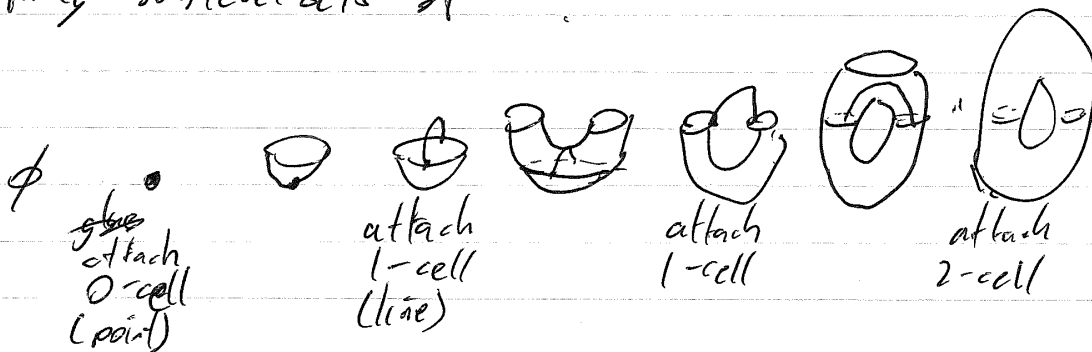 ∅
attach
0-cell
(point)
attach
1-cell
(line)
attach
1-cell
attach
2-cell